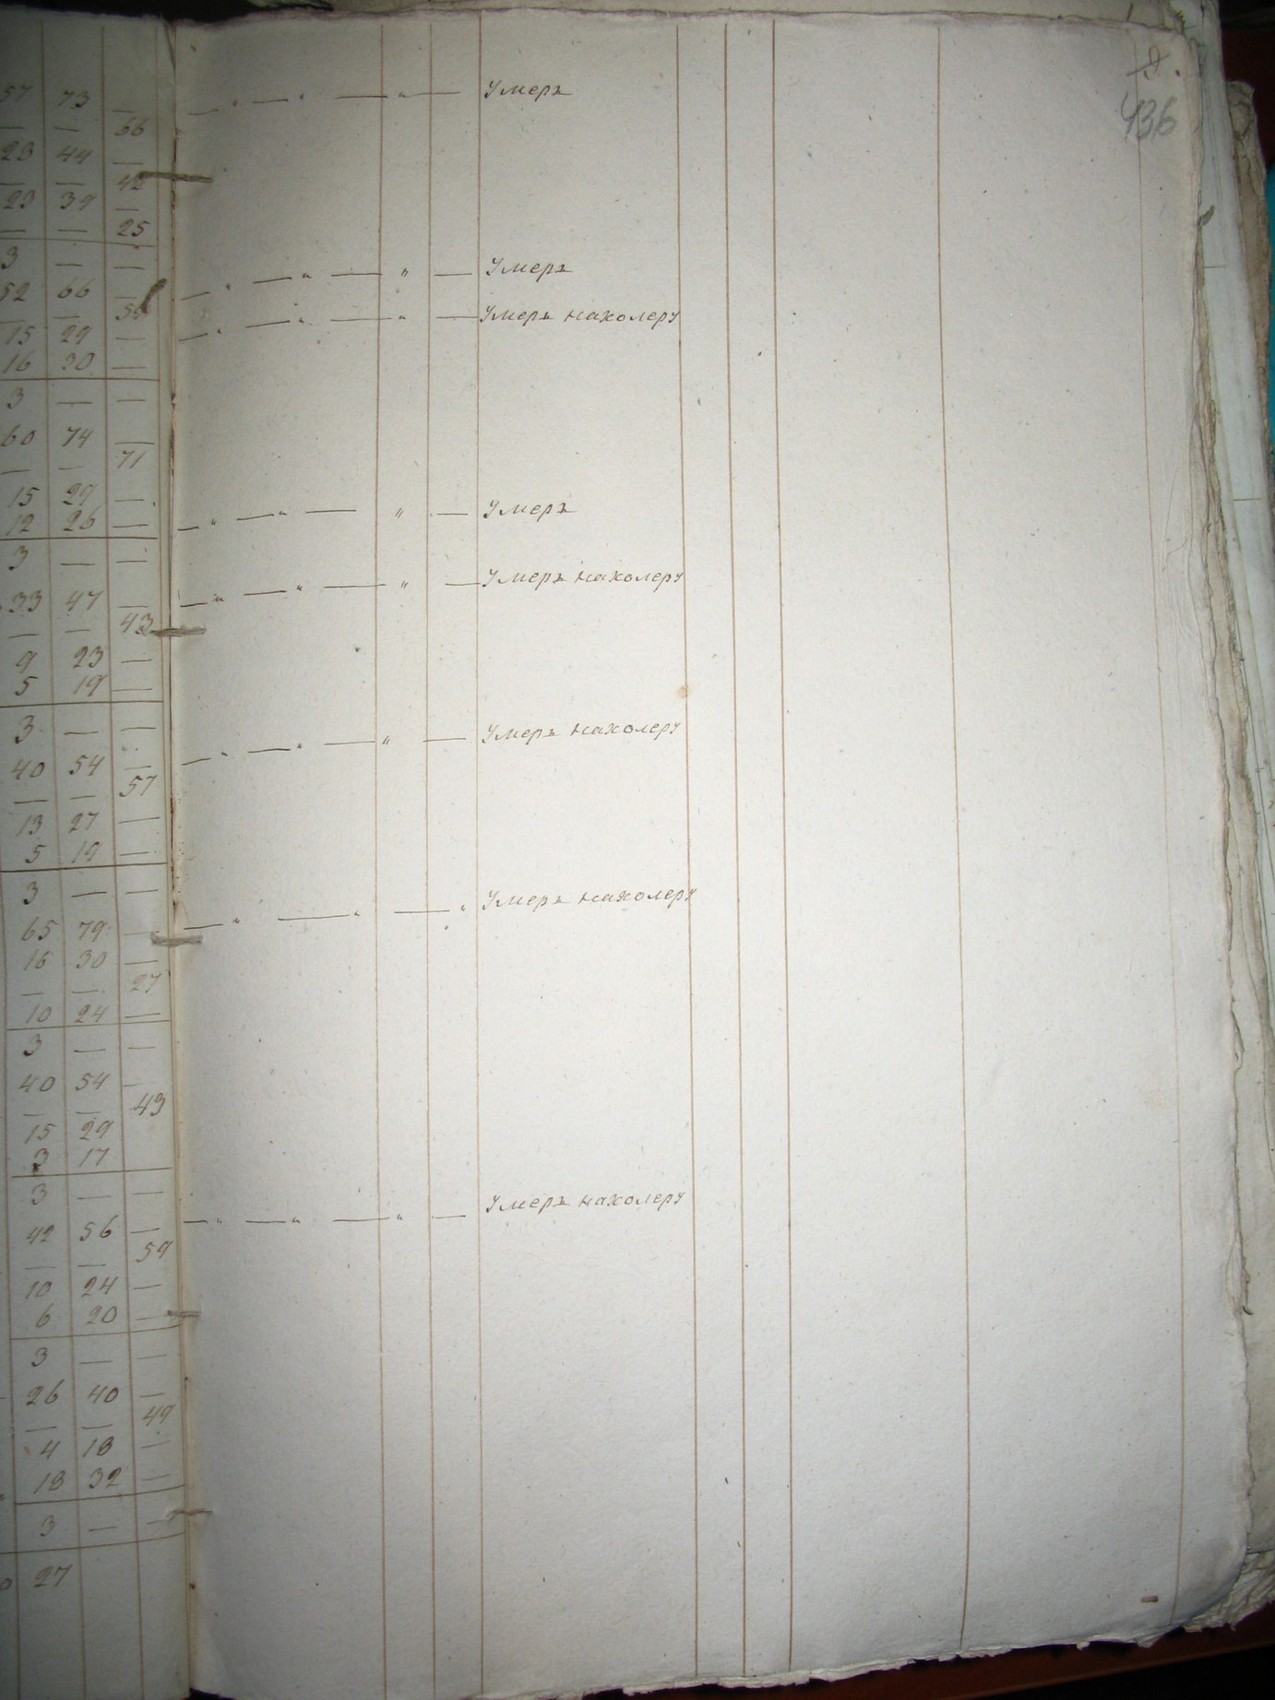 9.
436
57 73 —
— — 66
23 44 —
— — 42
23 39 —
— — 25
3 — —
52 66 —
— —
15 29 —
16 30 —
3 — —
60 74 —
— — 71
15 29 —
12 26 —
3 — —
33 47 —
— — 43
9 23 —
5 19 —
3 — —
40 54 —
— — 57
13 27 —
5 19 —
3 — —
65 79 —
16 30 —
— — 27
10 24 —
3 — —
40 54 —
— — 43
15 29
3 17
3 — —
42 56 —
— — 59
10 24 —
6 20 —
3 — —
26 40 —
— — 49
4 18 —
18 32 —
3 — —
27
— " — " — " — Умеръ
— " — " — " — Умеръ
— " — " — " — Умеръ нахолеру
— " — " — " — Умеръ
— " — " — " — Умеръ нахолеру
— " — " — " — Умеръ нахолеру
— " — " — " Умеръ нахолеру
— " — " — " — Умеръ нахолеру